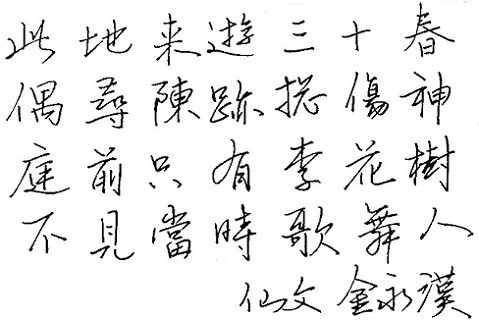 此地来遊三十春
偶尋陳跡摠傷神
庭前只有李花樹
不見當時歌舞人
仙文 金永漢